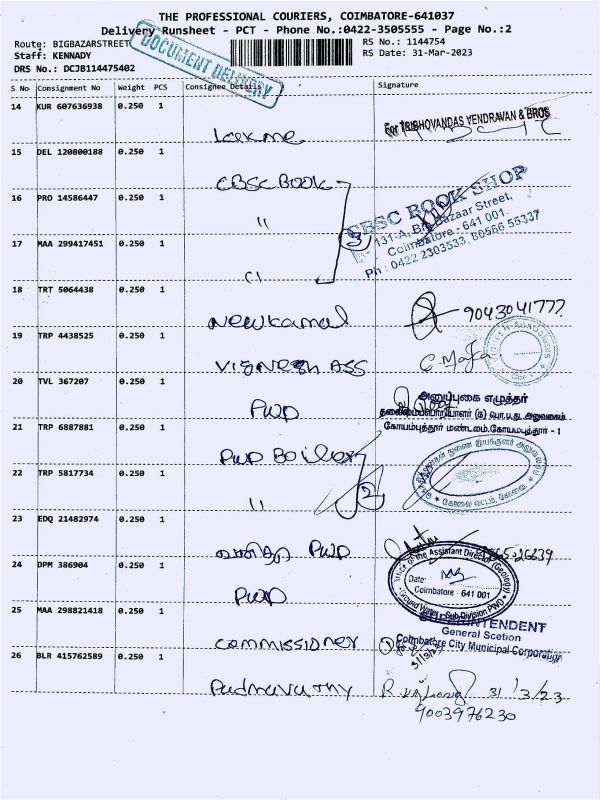 THE PROFESSIONAL COURIERS, COIMBATORE-641037
Delivery Runsheet - PCT - Phone No.:0422-3505555 - Page No.:2
Route: BIGBAZARSTREET
RS No.: 1144754
Staff: KENNADY
RS Date: 31-Mar-2023
DRS No.: DCJB114475402
DOCUMENT DELIVERY
S No Consignment No Weight PCS Consignee Details Signature
14 KUR 607636938 0.250 1
Lakme
For TRIBHOVANDAS VENDRAVAN & BROS
15 DEL 120800188 0.250 1
CBSC BOOK
16 PRO 14586447 0.250 1
"
3
CBSC BOOK SHOP
131-A, Big Bazaar Street,
Coimbatore - 641 001.
Ph : 0422 2303533, 80566 55337
17 MAA 299417451 0.250 1
"
18 TRT 5064438 0.250 1
New kamal
9043041777
19 TRP 4438525 0.250 1
VIGNESH ASS
20 TVL 367207 0.250 1
PWD
அனுப்புகை எழுத்தர்
தலைமைப்பொறியாளர் (க) பொ.ப.து. அலுவலகம்
கோயம்புத்தூர் மண்டலம்.கோயமபுத்தூர் - 1
21 TRP 6887881 0.250 1
PWD Boiler
22 TRP 5817734 0.250 1
"
2
23 EDQ 21482974 0.250 1
PWD
24 DPM 386904 0.250 1
PWD
Office of the Assistant Director (Geology)
Date:
Coimbatore - 641 001
Ground Water Sub Division PWD
25 MAA 298821418 0.250 1
COMMISSIONER
SUPERINTENDENT
General Scetion
Coimbatore City Municipal Corporation
26 BLR 415762589 0.250 1
Padmavathy
31/3/23
9003976230